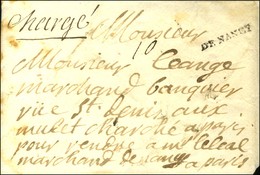 chargé
A Monsieur
DE NANCY
10
Monsieur Leange
marchand banquier
rüe St Denis aux
mulet charche a paris
pour rendre a mr Leleal
marchand de nancy a paris